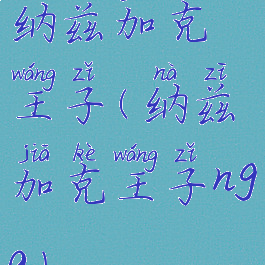 纳兹加克
wáng zǐ nà zī
王子(纳兹
jiā kè wáng zǐ
加克王子ng